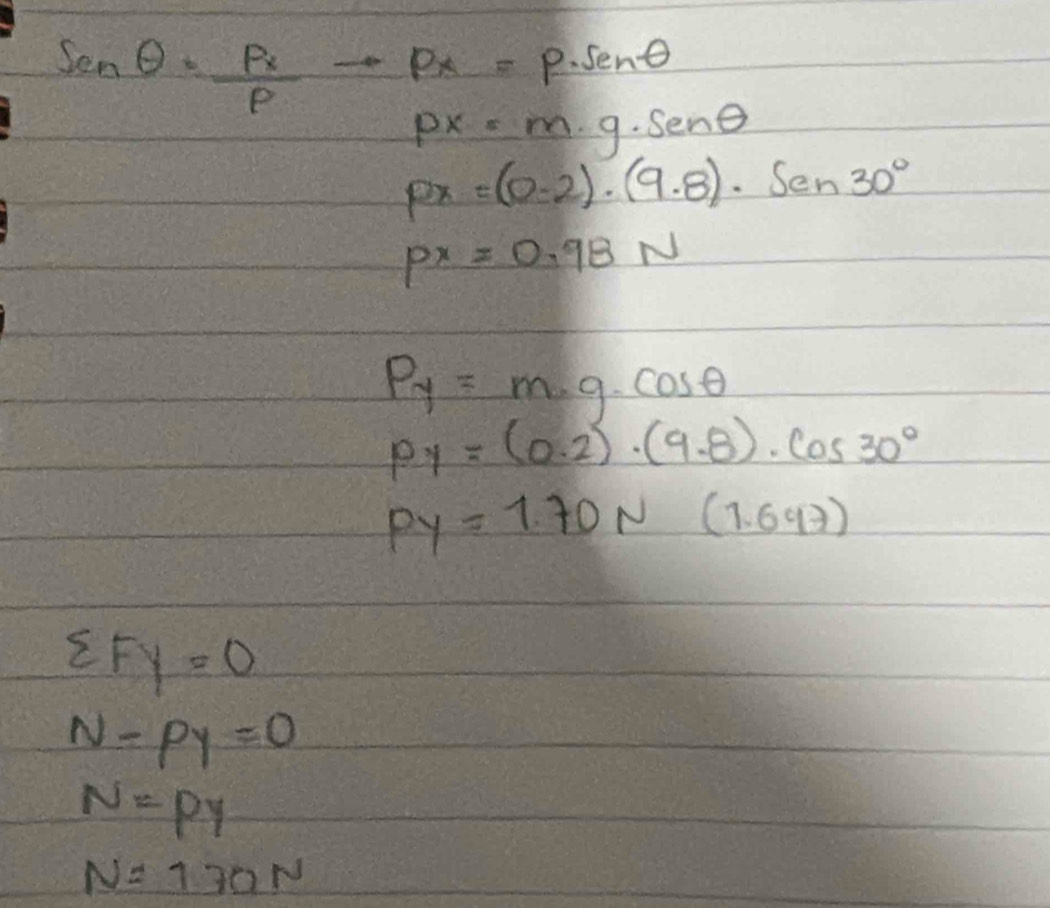 Sen θ = Px/P → Px = P.senθ
Px = m.g.senθ
Px = (0.2).(9.8). Sen 30°
Px = 0.98 N
Py = m.g.cosθ
Py = (0.2).(9.8).Cos 30°
Py = 1.70 N (1.697)
ΣFy = 0
N - Py = 0
N = Py
N = 1.70 N